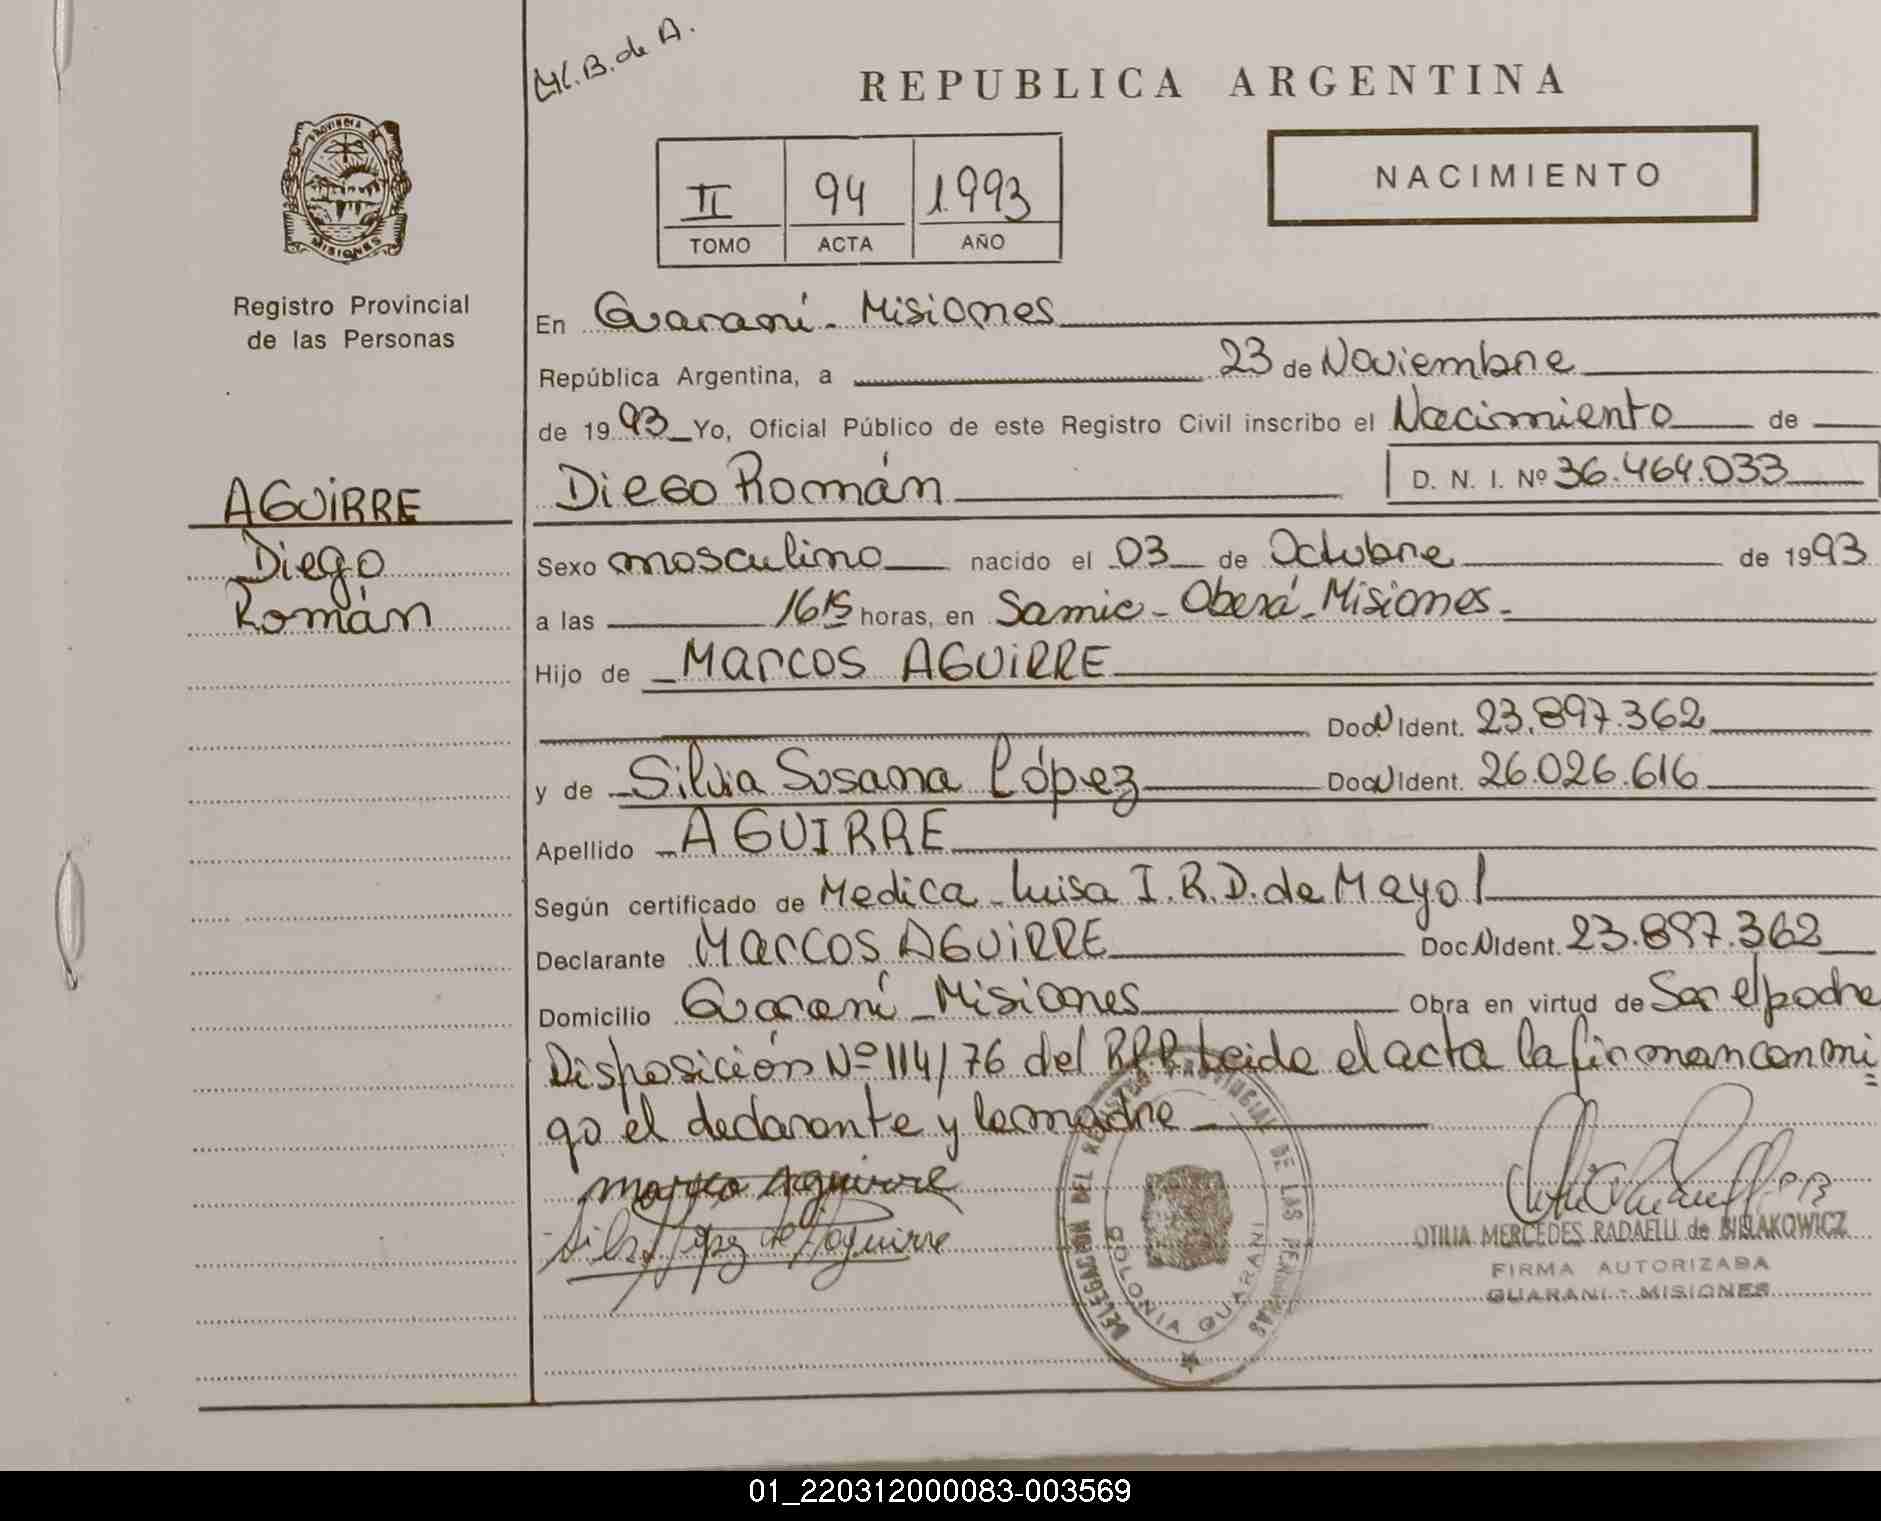 M.B. de A.
REPUBLICA ARGENTINA
PROVINCIA DE
MISIONES
II 94 1.993
TOMO ACTA AÑO
NACIMIENTO
Registro Provincial
de las Personas
En Guaraní - Misiones
República Argentina, a 23 de Noviembre
de 19 93 Yo, Oficial Público de este Registro Civil inscribo el Nacimiento de
AGUIRRE
Diego
Román
Diego Román D. N. I. Nº 36.464.033
Sexo masculino nacido el 03 de Octubre de 1993
a las 16 15 horas, en Samic - Oberá - Misiones -
Hijo de Marcos AGUIRRE
Doc N Ident. 23.897.362
y de Silvia Susana López Doc N Ident. 26.026.616
Apellido AGUIRRE
Según certificado de Medica - Luisa I. R. D. de Mayol
Declarante Marcos AGUIRRE Doc N Ident. 23.897.362
Domicilio Guaraní - Misiones Obra en virtud de Ser el padre
Disposición Nº 114/76 del R.P.P. Leida el acta la firman conmi=
go el declarante y la madre
Marcos Aguirre
Silvia López de Aguirre
DELEGACION DEL REGISTRO PROVINCIAL DE LAS PERSONAS
COLONIA GUARANI
OTILIA MERCEDES RADAELLI de BIELAKOWICZ
FIRMA AUTORIZADA
GUARANI - MISIONES
01_220312000083-003569